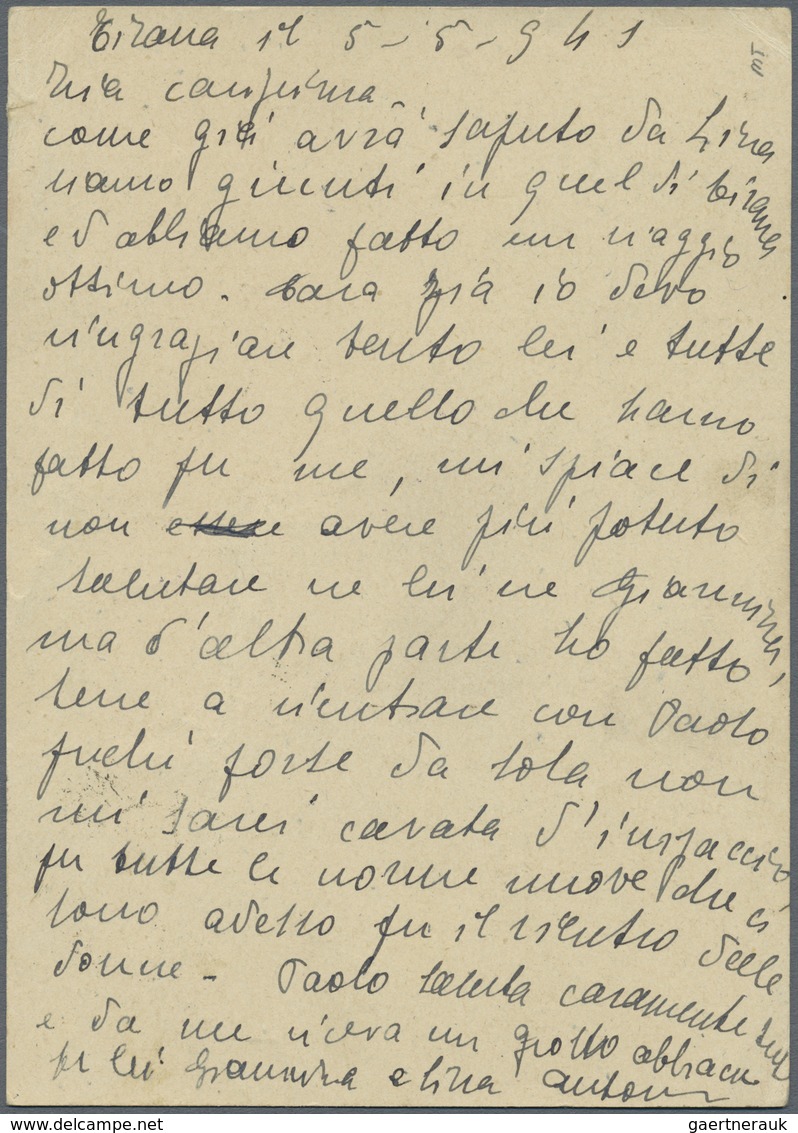 Tirana il 5-5-941
IM
Zia carissima
come già avrà saputo da Lina
siamo giunti in quel di Tirana
ed abbiamo fatto un viaggio
ottimo. Cara zia io devo
ringraziare tanto lei e tutte
di tutto quello che hanno
fatto per me, mi spiace di
non essere avere più potuto
salutare ne lei ne Giannina,
ma d'altra parte ho fatto
bene a rientrare con Paolo
perchè forse da sola non
mi sarei cavata d'impaccio
per tutte le norme nuove che ci
sono adesso per il rientro delle
donne - Paolo saluta caramente
e da me riceva un grosso abbraccio
per lei Giannina e Lina
gaertnerauk